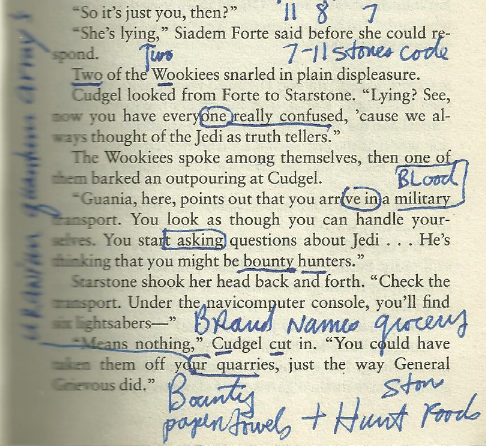 "So it's just you, then?" 11 8 7
"She's lying," Siadem Forte said before she could re-
spond. Two 7-11 stones code
Two of the Wookiees snarled in plain displeasure.
Cudgel looked from Forte to Starstone. "Lying? See,
now you have everyone really confused, 'cause we al-
ways thought of the Jedi as truth tellers."
The Wookiees spoke among themselves, then one of
them barked an outpouring at Cudgel. Blood
"Guania, here, points out that you arrive in a military
transport. You look as though you can handle your-
selves. You start asking questions about Jedi . . . He's
thinking that you might be bounty hunters."
Starstone shook her head back and forth. "Check the
transport. Under the navicomputer console, you'll find
six lightsabers—" Brand Names grocery
"Means nothing," Cudgel cut in. "You could have
taken them off your quarries, just the way General
Grievous did."
Bounty
paper towels + Hunt Foods
quantum